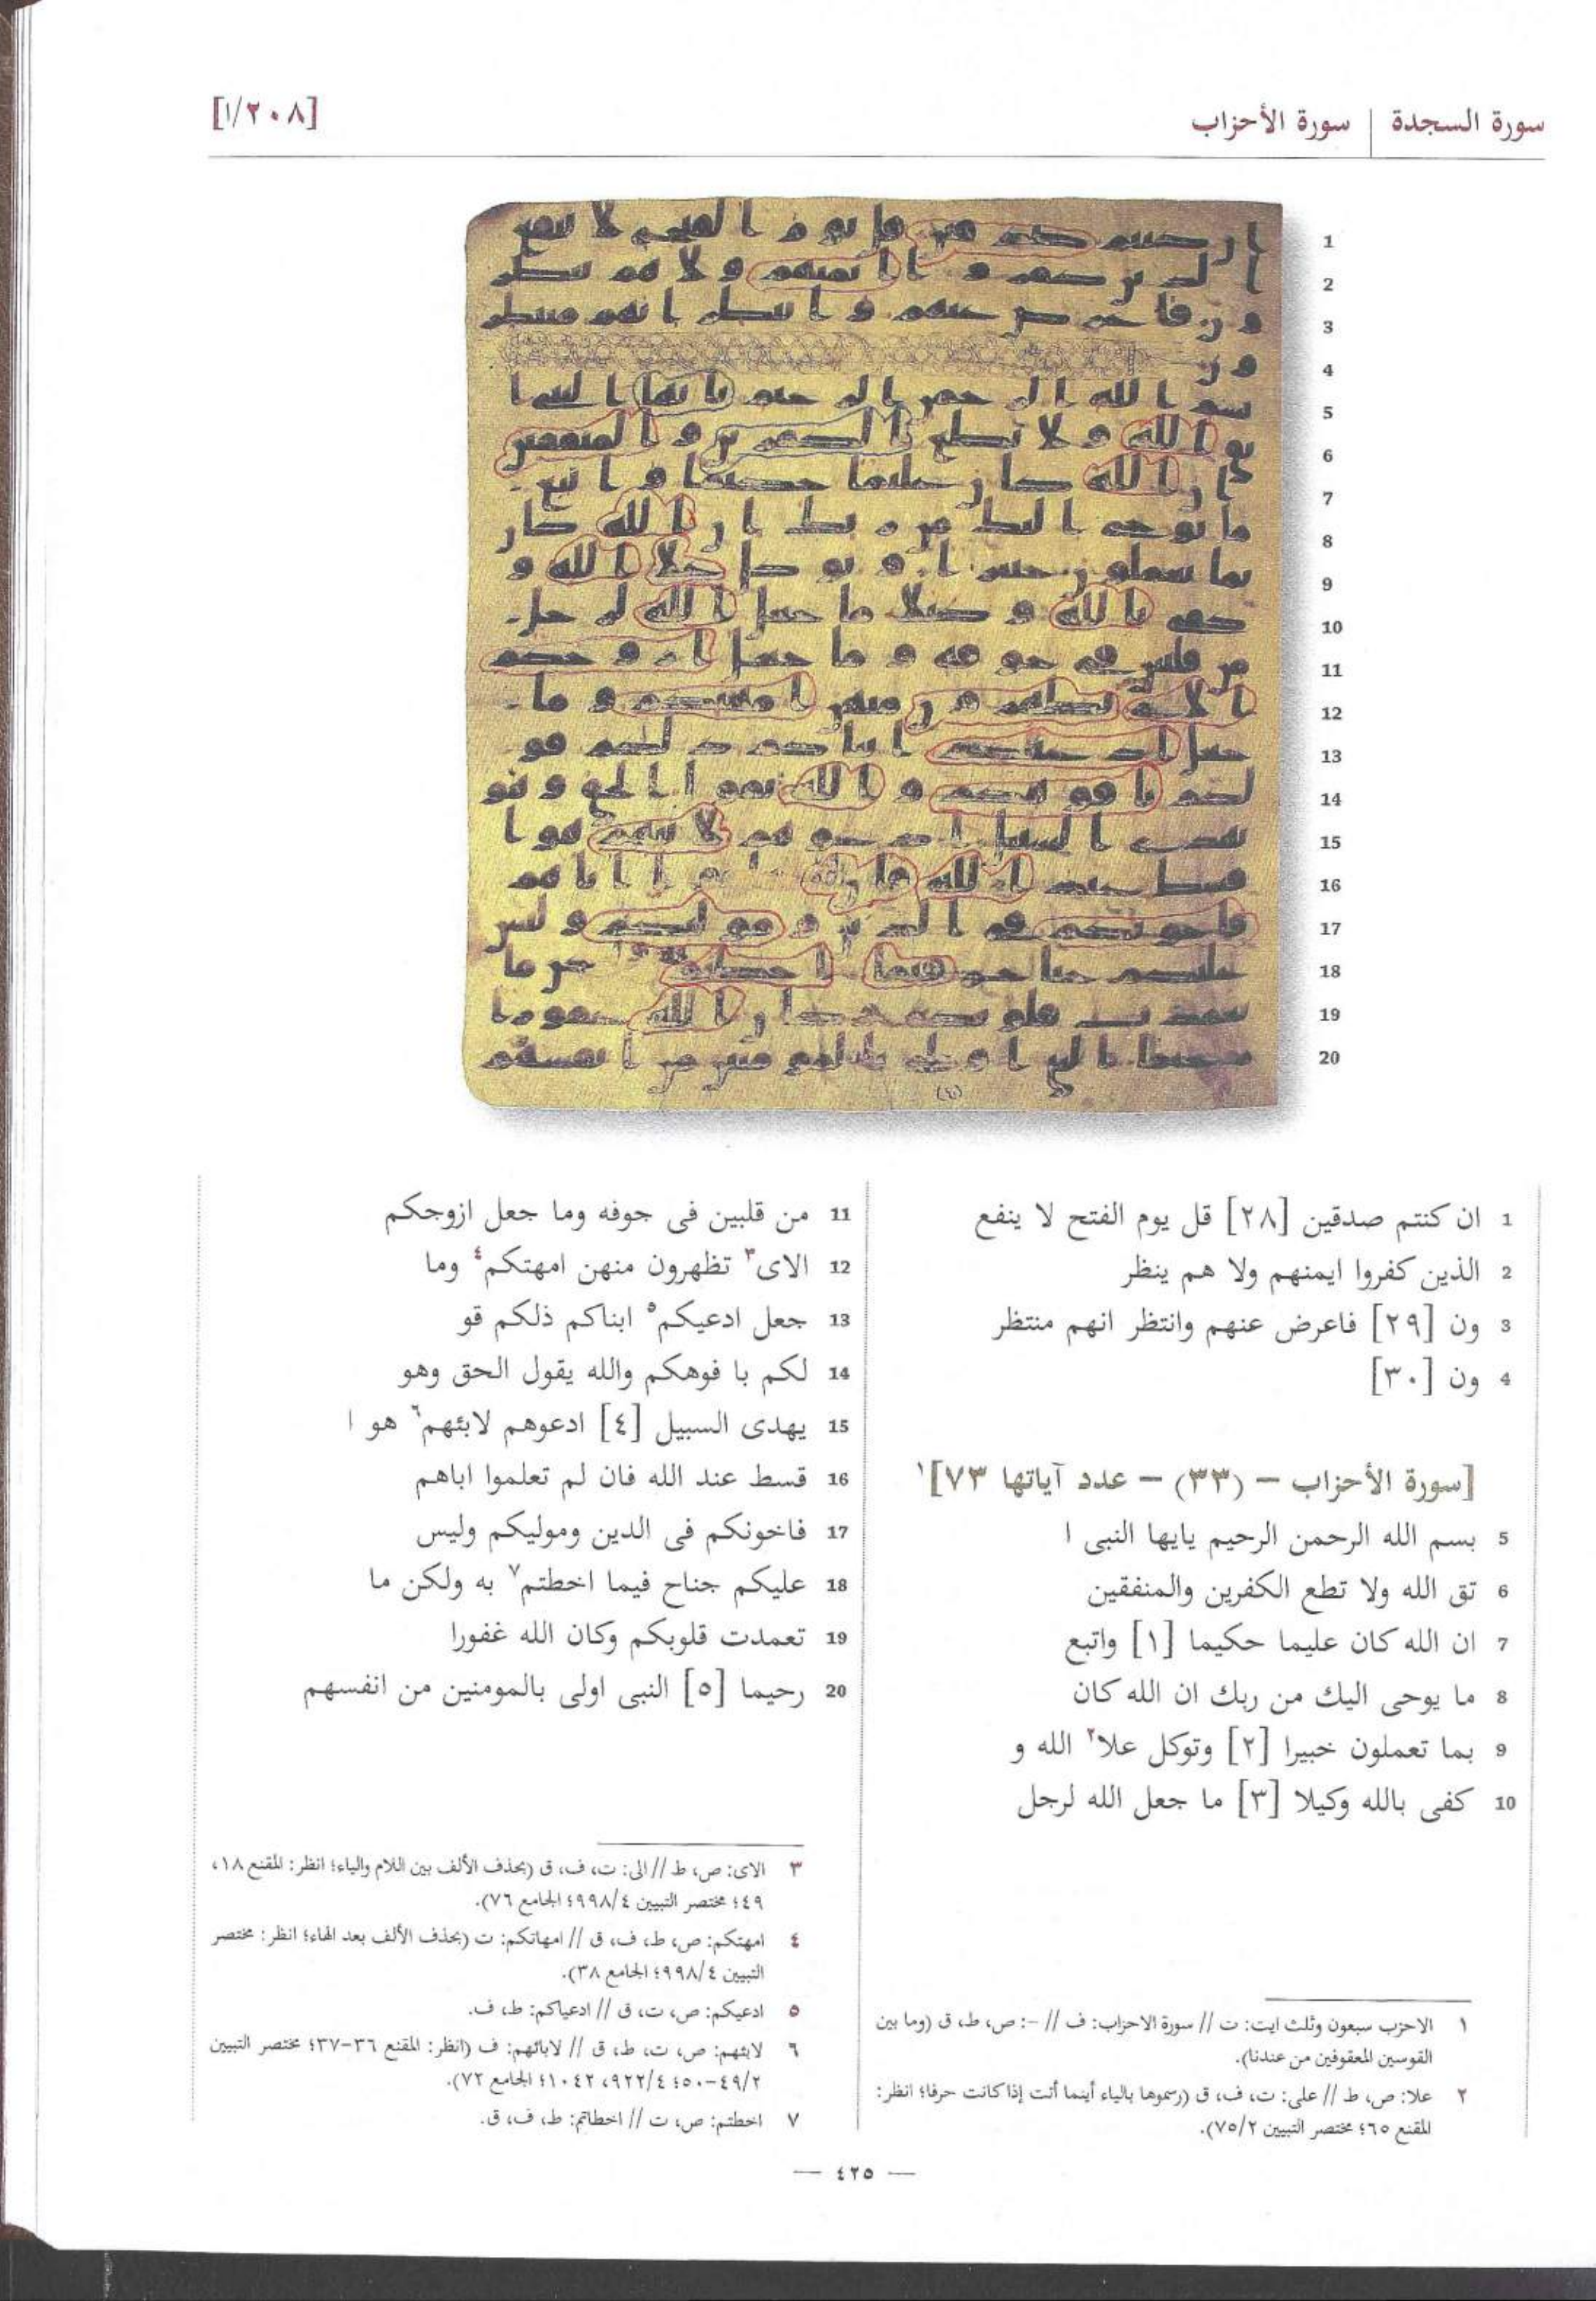 سورة السجدة | سورة الأحزاب
[١/٢٠٨]
1 ان كنتم صدقين [٢٨] قل يوم الفتح لا ينفع
2 الذين كفروا ايمنهم ولا هم ينظر
3 ون [٢٩] فاعرض عنهم وانتظر انهم منتظر
4 ون [٣٠]
[سورة الأحزاب – (٣٣) – عدد آياتها ٧٣]١
5 بسم الله الرحمن الرحيم يايها النبى ا
6 تق الله ولا تطع الكفرين والمنفقين
7 ان الله كان عليما حكيما [١] واتبع
8 ما يوحى اليك من ربك ان الله كان
9 بما تعملون خبيرا [٢] وتوكل علا٢ الله و
10 كفى بالله وكيلا [٣] ما جعل الله لرجل
11 من قلبين فى جوفه وما جعل ازوجكم
12 الاى٣ تظهرون منهن امهتكم٤ وما
13 جعل ادعيكم٥ ابناكم ذلكم قو
14 لكم با فوهكم والله يقول الحق وهو
15 يهدى السبيل [٤] ادعوهم لابئهم٦ هو ا
16 قسط عند الله فان لم تعلموا اباهم
17 فاخونكم فى الدين وموليكم وليس
18 عليكم جناح فيما اخطتم٧ به ولكن ما
19 تعمدت قلوبكم وكان الله غفورا
20 رحيما [٥] النبى اولى بالمومنين من انفسهم
١ الاحزب سبعون وثلث ايت: ت // سورة الاحزاب: ف // -: ص، ط، ق (وما بين
القوسين المعقوفين من عندنا).
٢ علا: ص، ط // على: ت، ف، ق (رسموها بالياء أينما أتت إذا كانت حرفا؛ انظر:
المقنع ٦٥؛ مختصر التبيين ٧٥/٢).
٣ الاى: ص، ط // الى: ت، ف، ق (بحذف الألف بين اللام والياء؛ انظر: المقنع ١٨،
٤٩؛ مختصر التبيين ٩٩٨/٤؛ الجامع ٧٦).
٤ امهتكم: ص، ط، ف، ق // امهاتكم: ت (بحذف الألف بعد الهاء؛ انظر: مختصر
التبيين ٩٩٨/٤؛ الجامع ٣٨).
٥ ادعيكم: ص، ت، ق // ادعياكم: ط، ف.
٦ لابئهم: ص، ت، ط، ق // لابائهم: ف (انظر: المقنع ٣٦-٣٧؛ مختصر التبيين
٤٩/٢-٥٠؛ ٩٢٢/٤، ١٠٤٢؛ الجامع ٧٢).
٧ اخطتم: ص، ت // اخطاتم: ط، ف، ق.
— ٤٢٥ —